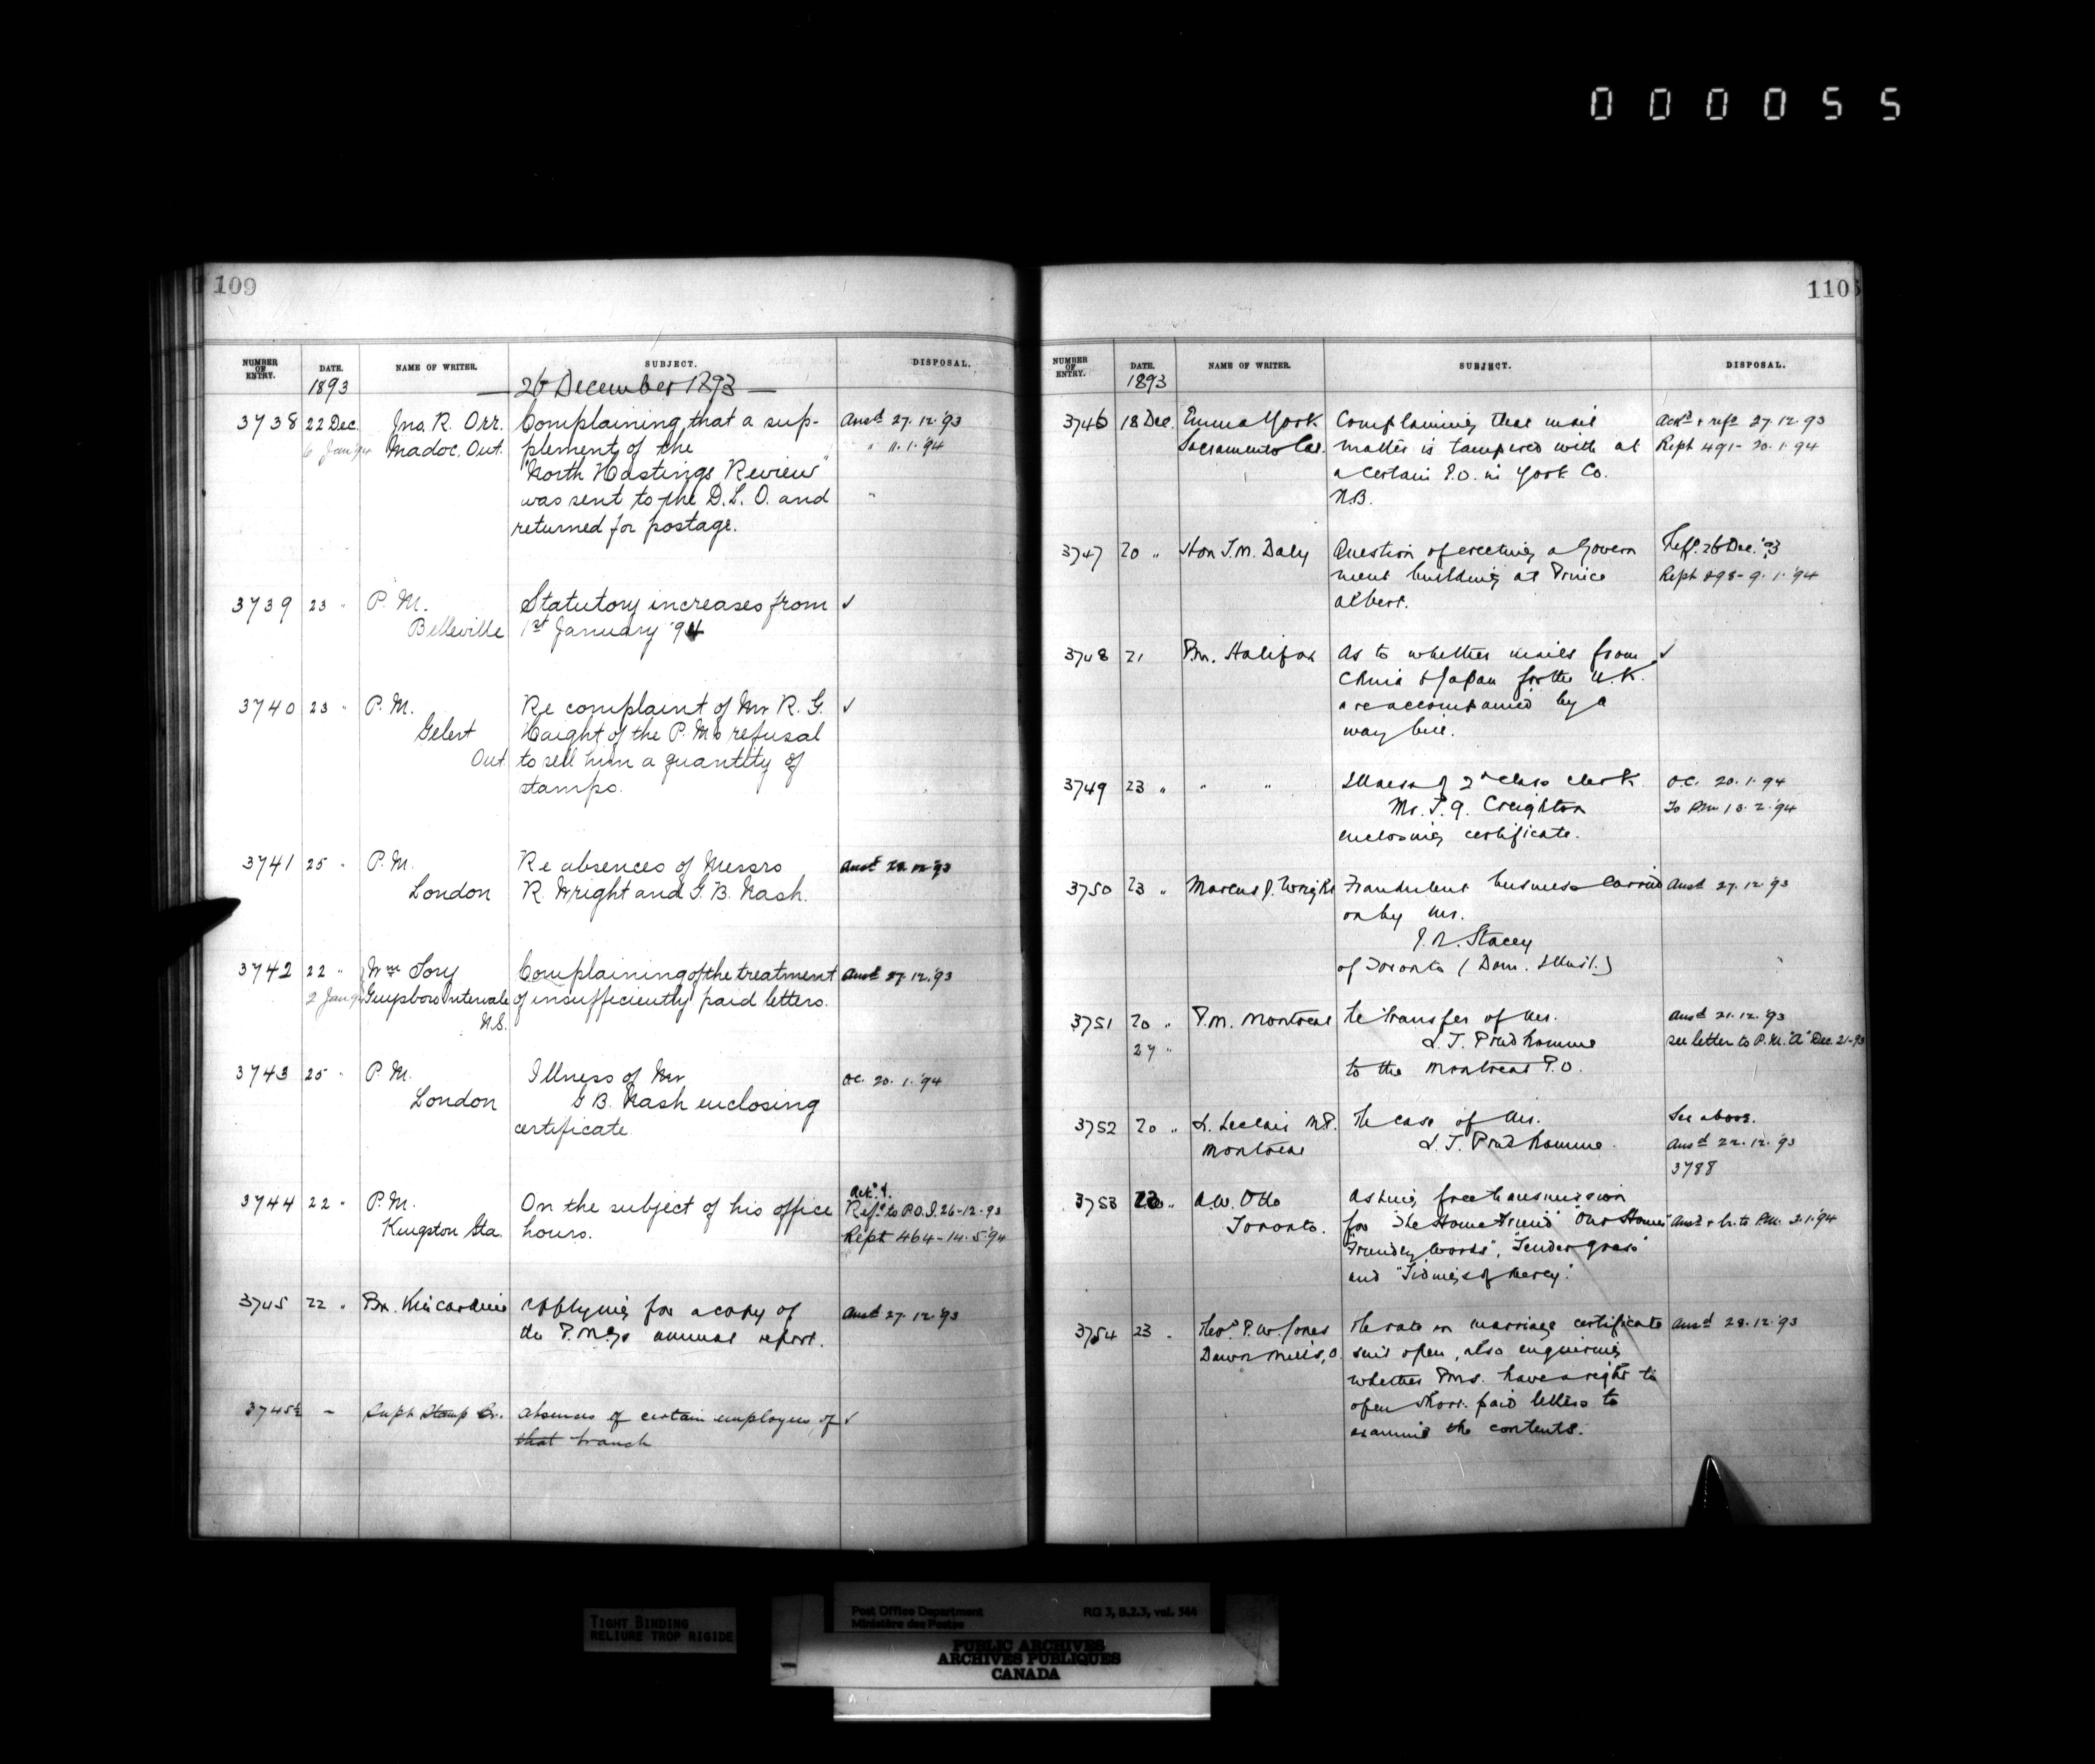 000055
109
NUMBER OF ENTRY. DATE. NAME OF WRITER. SUBJECT. DISPOSAL.
1893 26 December 1893
3738 22 Dec. Jno. R. Orr. Complaining that a sup- Ansd 27.12.'93
6 Jan 94 Madoc. Ont. plement of the " 11.1.'94
"North Hastings Review"
was sent to the D.L.O. and "
returned for postage.
3739 23 " P.M. Statutory increases from ✓
Belleville 1st January '94
3740 23 " P.M. Re complaint of Mr R. G. ✓
Gelert Haight of the P.M's refusal
Ont. to sell him a quantity of
stamps.
3741 25 " P.M. Re absences of Messrs Ansd 28.12.'93
London R. Wright and G. B. Nash.
3742 22 " Wm Tory Complaining of the treatment Ansd 27.12.'93
2 Jan 94 Guysboro Intervale of insufficiently paid letters.
N.S.
3743 25 " P.M. Illness of Mr OC. 20.1.'94
London G. B. Nash enclosing
certificate
Ackd &
3744 22 " P.M. On the subject of his office Refd to P.O.I. 26-12-93
Kingston Sta. hours. Rept 464-14.5.'94
3745 22 " Pm. Kincardine Applying for a copy of Ansd 27.12.'93
the P.M.G's annual report.
3745½ - Supt Stamp Br. Absences of certain employees of ✓
that branch
110
NUMBER OF ENTRY. DATE. NAME OF WRITER. SUBJECT. DISPOSAL.
1893
3746 18 Dec. Emma York Complaining that mail Ackd & refd 27.12.93
Sacramento Cal. matter is tampered with at Rept 491-20.1.94
a certain P.O. in York Co.
N.B.
3747 20 " Hon T.M. Daly Question of erecting a Govern Refd. 26 Dec. '93
ment building at Prince Rept 898-9.1.'94
Albert.
3748 21 P.M. Halifax As to whether mails from ✓
China & Japan for the U.K.
are accompanied by a
way bill.
3749 23 " " " Illness of 2d class clerk O.C. 20.1.94
Mr. T. G. Creighton To PM 13.2.'94
enclosing certificate.
3750 23 " Marcus J. Wright Fraudulent business carried Ansd 27.12.'93
on by Mr.
J. R. Stacey
of Toronto (Dom. Illust.)
3751 20 " P.M. Montreal Re transfer of Mr. Ansd 21.12.'93
27 " L. J. Prudhomme see letter to P.M. "A" Dec. 21-93
to the Montreal P.O.
3752 20 " L. Leclair M.P. The case of Mr. See above.
Montreal L. J. Prudhomme. Ansd 22.12.'93
3788
3753 " A.W. Otto Asking free transmission
Toronto. for "The Home Friend" "Our Home" Ansd & to PM. 3.1.'94
"Friendly Words", "Tender grass"
and "Tidings of Mercy".
3754 23 " Theos. P. W. Jones The rate on marriage certificate Ansd 28.12.'93
Dawn Mills, O. sent open, also enquiring
whether PMs. have a right to
open short paid letters to
examine the contents.
TIGHT BINDING
RELIURE TROP RIGIDE
Post Office Department RG 3, B.2.3, vol. 544
Ministère des Postes
PUBLIC ARCHIVES
ARCHIVES PUBLIQUES
CANADA